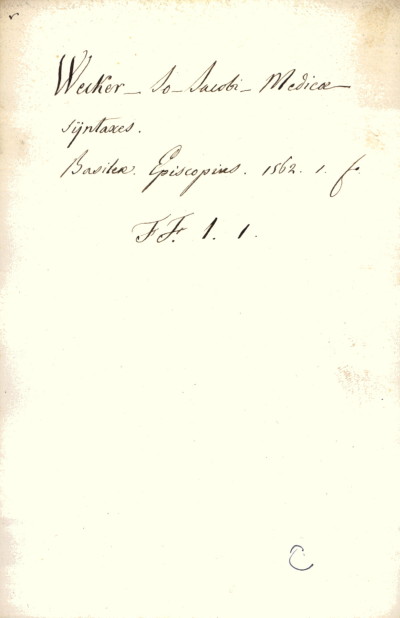 Wecker - Jo - Jacobi - Medicæ
sÿntaxes.
Basileæ. Episcopius. 1562. 1. f.
FF. 1. 1.
C